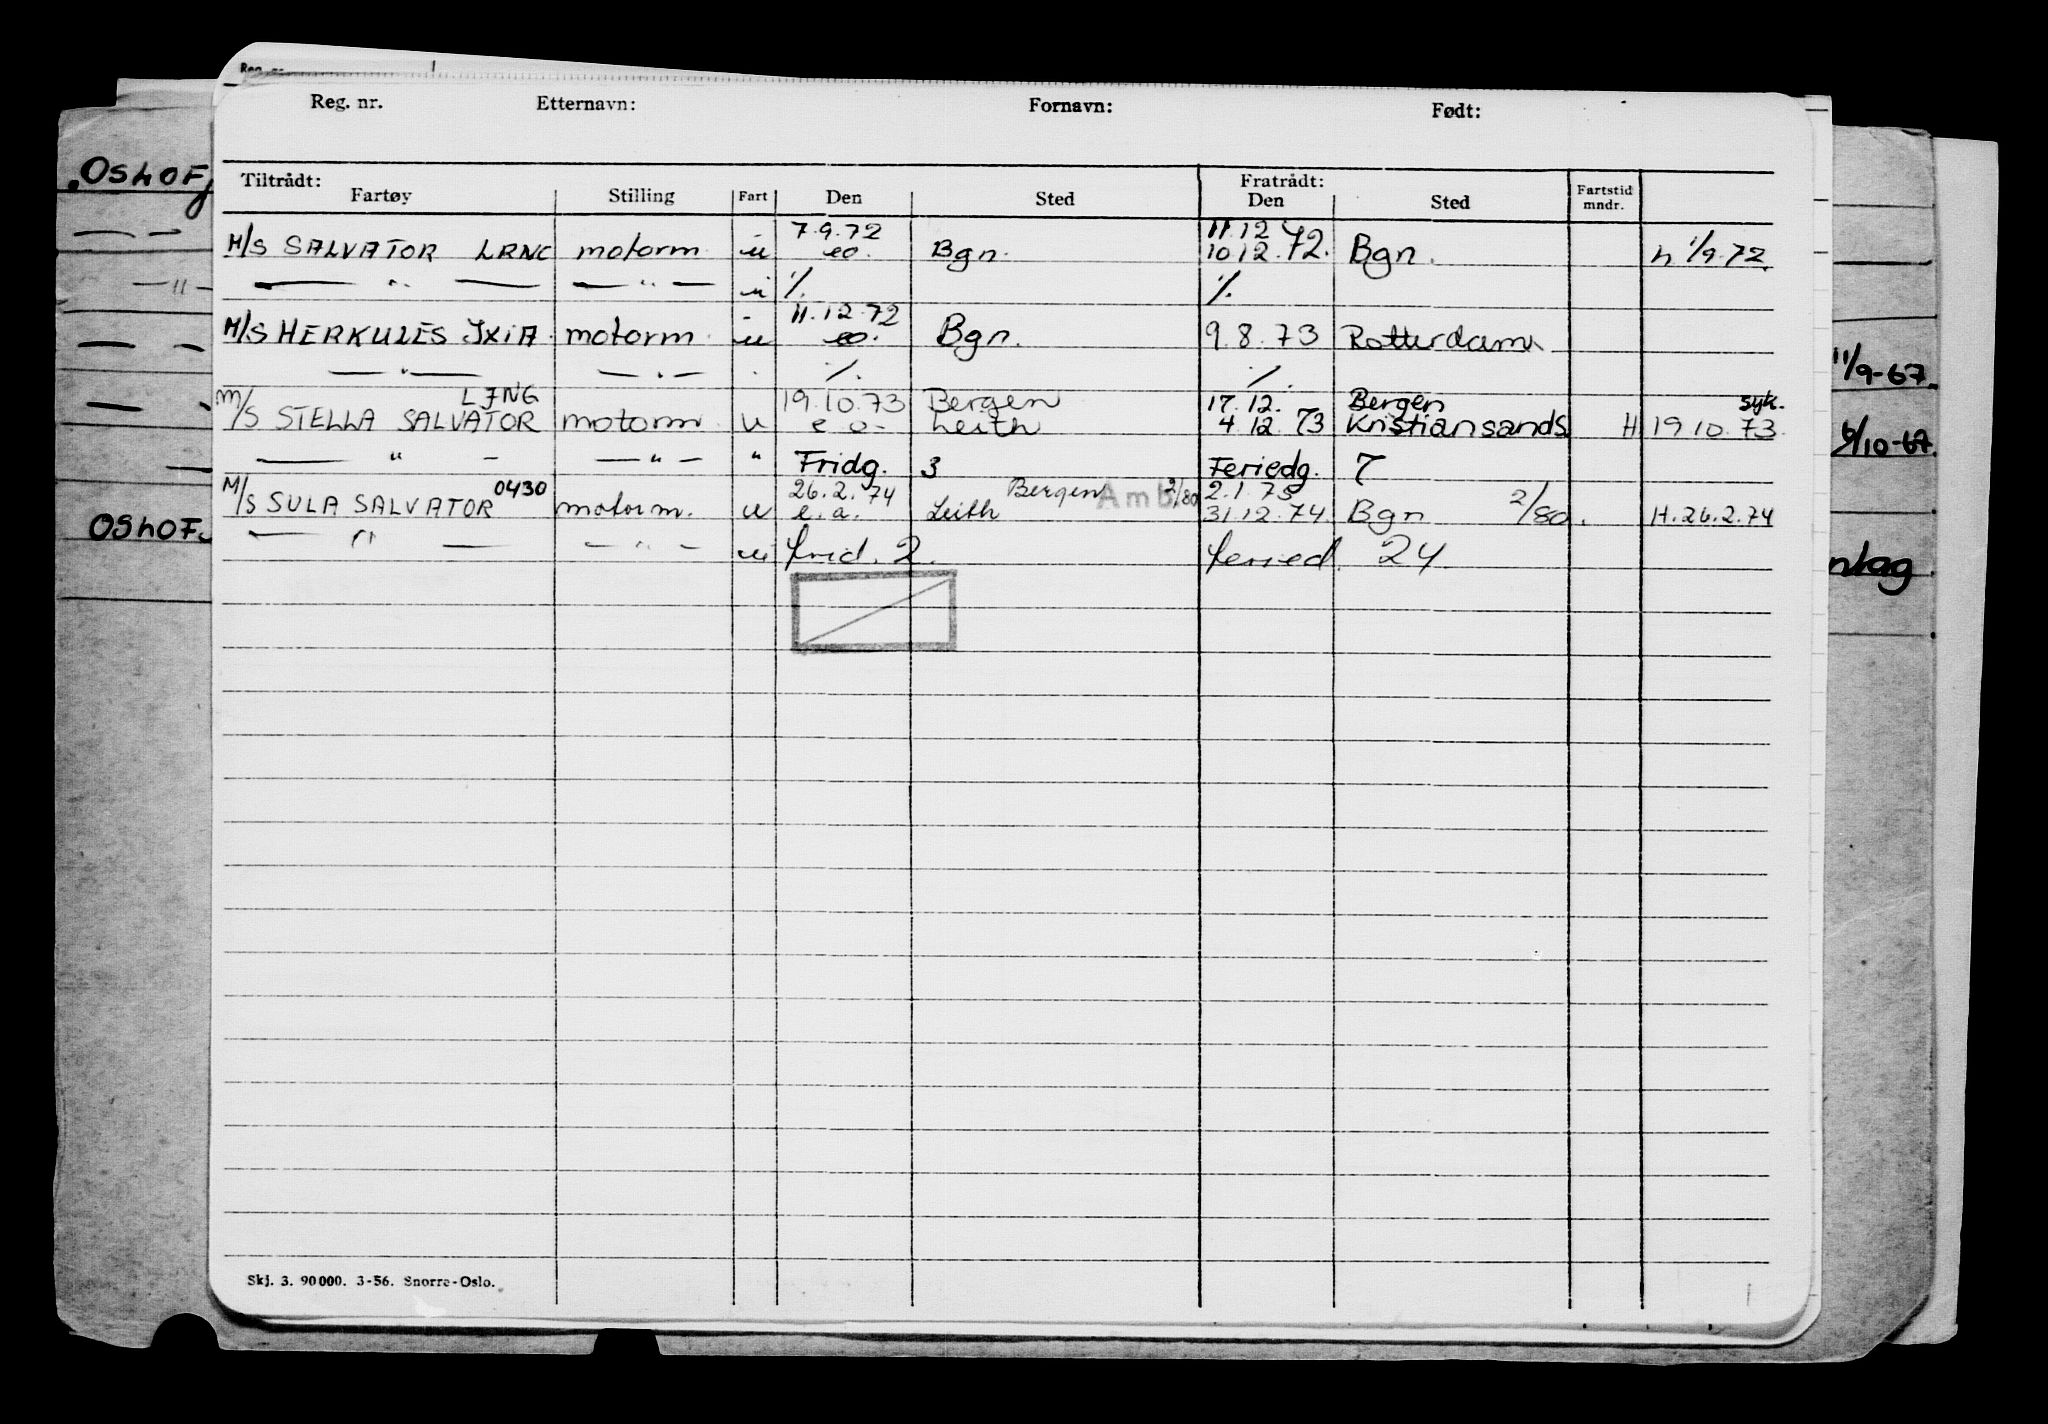 Reg. nr. Etternavn: Fornavn: Født:
Tiltrådt: Fratrådt:
Fartøy Stilling Fart Den Sted Den Sted Fartstid mndr.
7.9.72 11.12
M/S SALVATOR LRNC motorm u eo. Bgn. 10.12.72. Bgn. h 1/9.72
— " — — " — u %. %.
11.12.72
M/S HERKULES JXIA motorm u eo. Bgn. 9.8.73 Rotterdam
— " — — " — %. %.
LJNG 19.10.73 Bergen 17.12. Bergen syk.
M/S STELLA SALVATOR motorm u e o- Leith 4.12.73 Kristiansands H 19.10.73
— " — — " — " Fridg. 3 Feriedg. 7
0430 26.2.74 Bergen Amb 2/80 2.1.75
M/S SULA SALVATOR motorm. u e.a. Leith 31.12.74 Bgn 2/80. H.26.2.74
— " — — " — u frid. 2. feried. 24
Skj. 3. 90000. 3-56. Snorre-Oslo.
OSLOF
— " —
OSLOF.
11/9-67.
/10-67.